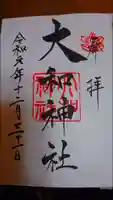 奉拝
大和神社
令和元年十二月三十一日